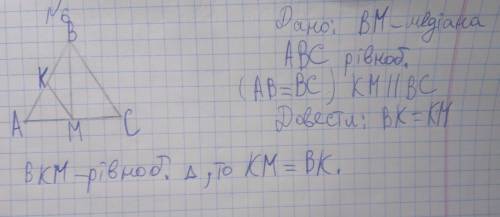 №6
B
K
A
M
C
Дано: BM-медіана
ABC рівноб.
(AB=BC) KM||BC
Довести: BK=KM
BKM-рівноб. Δ, то KM=BK.